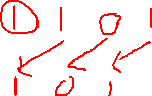 1 1 0 1
1 0 1